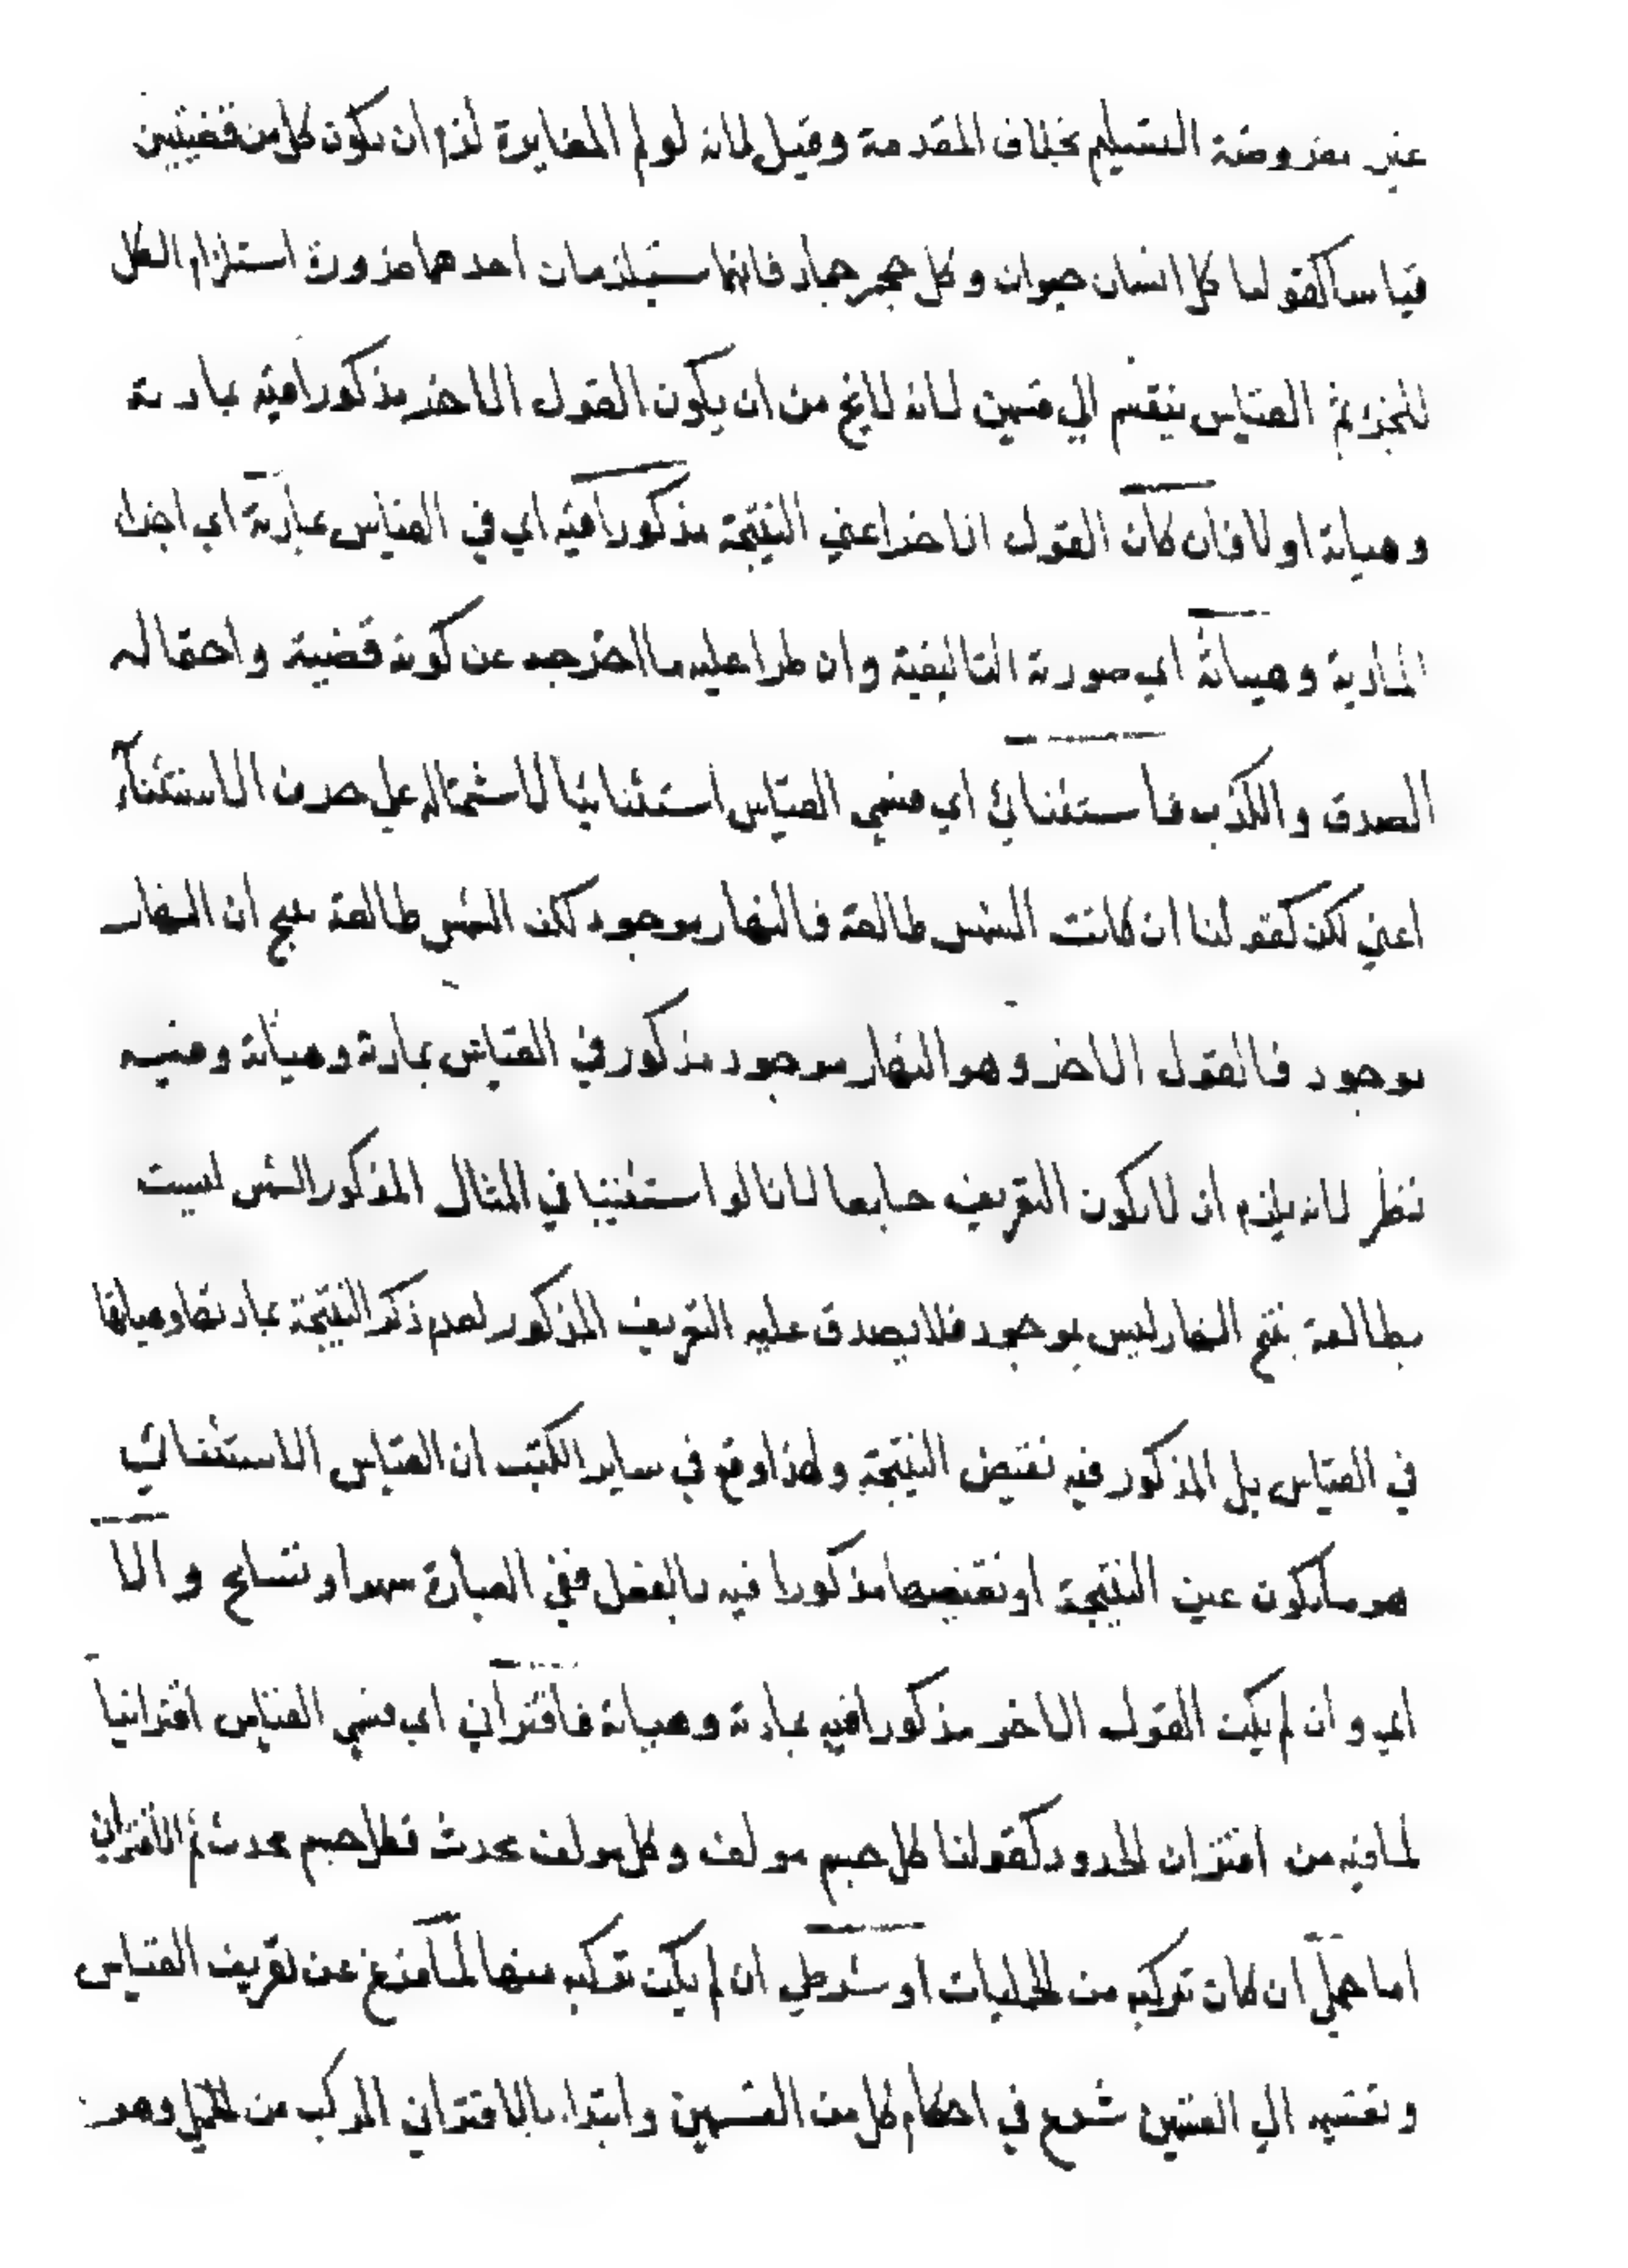 غير مفروضة التسليم بخلاف المقدمة وقيل لانه لو لم المغايرة لزم ان يكون كل من قضيتين
قياسا كقولنا كل انسان حيوان وكل حجر جماد فانهما ستلزمان احدهما ضرورة استلزام الكل
للجزء ثم القياس ينقسم الي قسمين لانه لا يخ من ان يكون القول الاخر مذكورا فيه بمادته
وهياته اولا فان كان القول الاخر اعني النتيجة مذكورا فيه اي في القياس بمادته اي اجزاءه
المادية وهياته اي صورته التاليفية وان طرا عليه ما اخرجه عن كونه قضية واحتماله
الصدق والكذب فاستثنائي اي فسمي القياس استثنائيا لاشتماله علي حرف الاستثناء
اعني لكن كقولنا ان كانت الشمس طالعة فالنهار موجود لكن الشمس طالعة ينتج ان النهار
موجود فالقول الاخر وهو النهار موجود مذكور في القياس بمادته وهياته وفيه
نظر لانه يلزم ان لا يكون التعريف جامعا لانا لو استثنينا في المثال المذكور الشمس ليست
بطالعة ينتج النهار ليس بموجود فلا يصدق عليه التعريف المذكور لعدم ذكر النتيجة بمادتها وهياتها
في القياس بل المذكور فيه نقيض النتيجة ولهذا وقع في ساير الكتب ان القياس الاستثنائي
هو ما يكون عين النتيجة او نقيضها مذكورا فيه بالفعل ففي العبارة سهو او تسامح والا
اي وان لم يكن القول الاخر مذكورا فيه بمادته وهياته فاقتراني اي فسمي القياس اقترانيا
لما فيه من اقتران الحدود كقولنا كل جسم مولف وكل مولف محدث فكل جسم محدث ثم الاقتراني
اما حملي ان كان تركبه من الحمليات او شرطي ان لم يكن تركبه منها لما فرغ عن تعريف القياس
وتقسيمه الي القسمين شرع في احكام كل من القسمين وابتداء بالاقتراني المركب من الحملي وهو